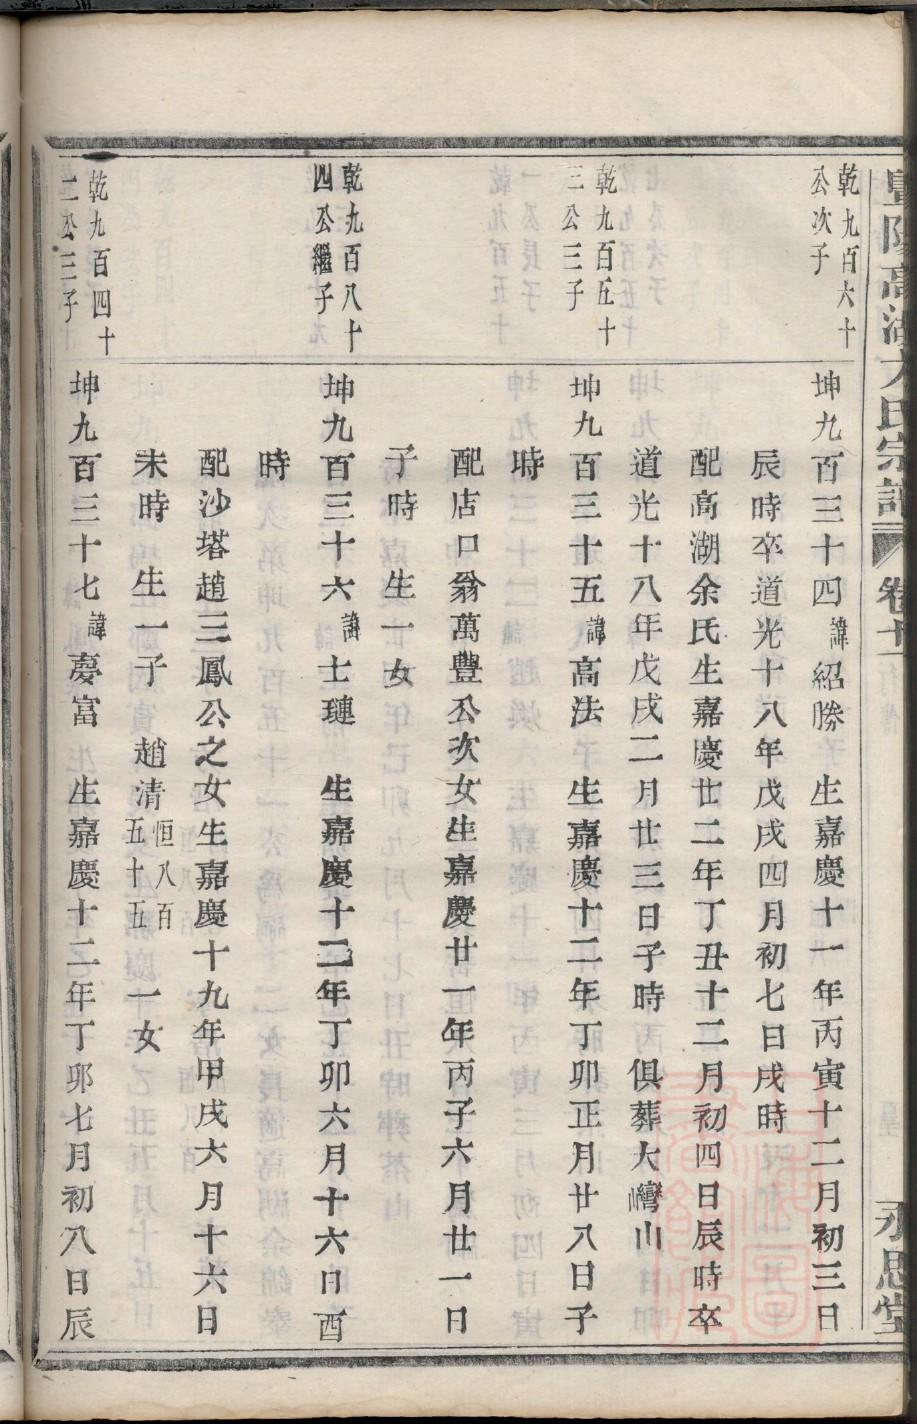 暨陽高湖 氏宗譜 卷十 永思堂
乾九百六十
公次子
坤九百三十四諱紹勝 生嘉慶十一年丙寅十二月初三日
辰時卒道光十八年戊戌四月初七日戌時
配高湖余氏生嘉慶廿二年丁丑十二月初四日辰時卒
道光十八年戊戌二月廿三日子時 俱葬大灣山
乾九百五十
三公三子
坤九百三十五諱高法 生嘉慶十二年丁卯正月廿八日子
時
配店口翁萬豐公次女生嘉慶廿一年丙子六月廿一日
子時 生一女
乾九百八十
四公繼子
坤九百三十六諱士璉 生嘉慶十二年丁卯六月十六日酉
時
配沙塔趙三鳳公之女生嘉慶十九年甲戌六月十六日
未時 生一子 趙清恒八百五十五 一女
乾九百四十
二公三子
坤九百三十七諱慶富 生嘉慶十二年丁卯七月初八日辰